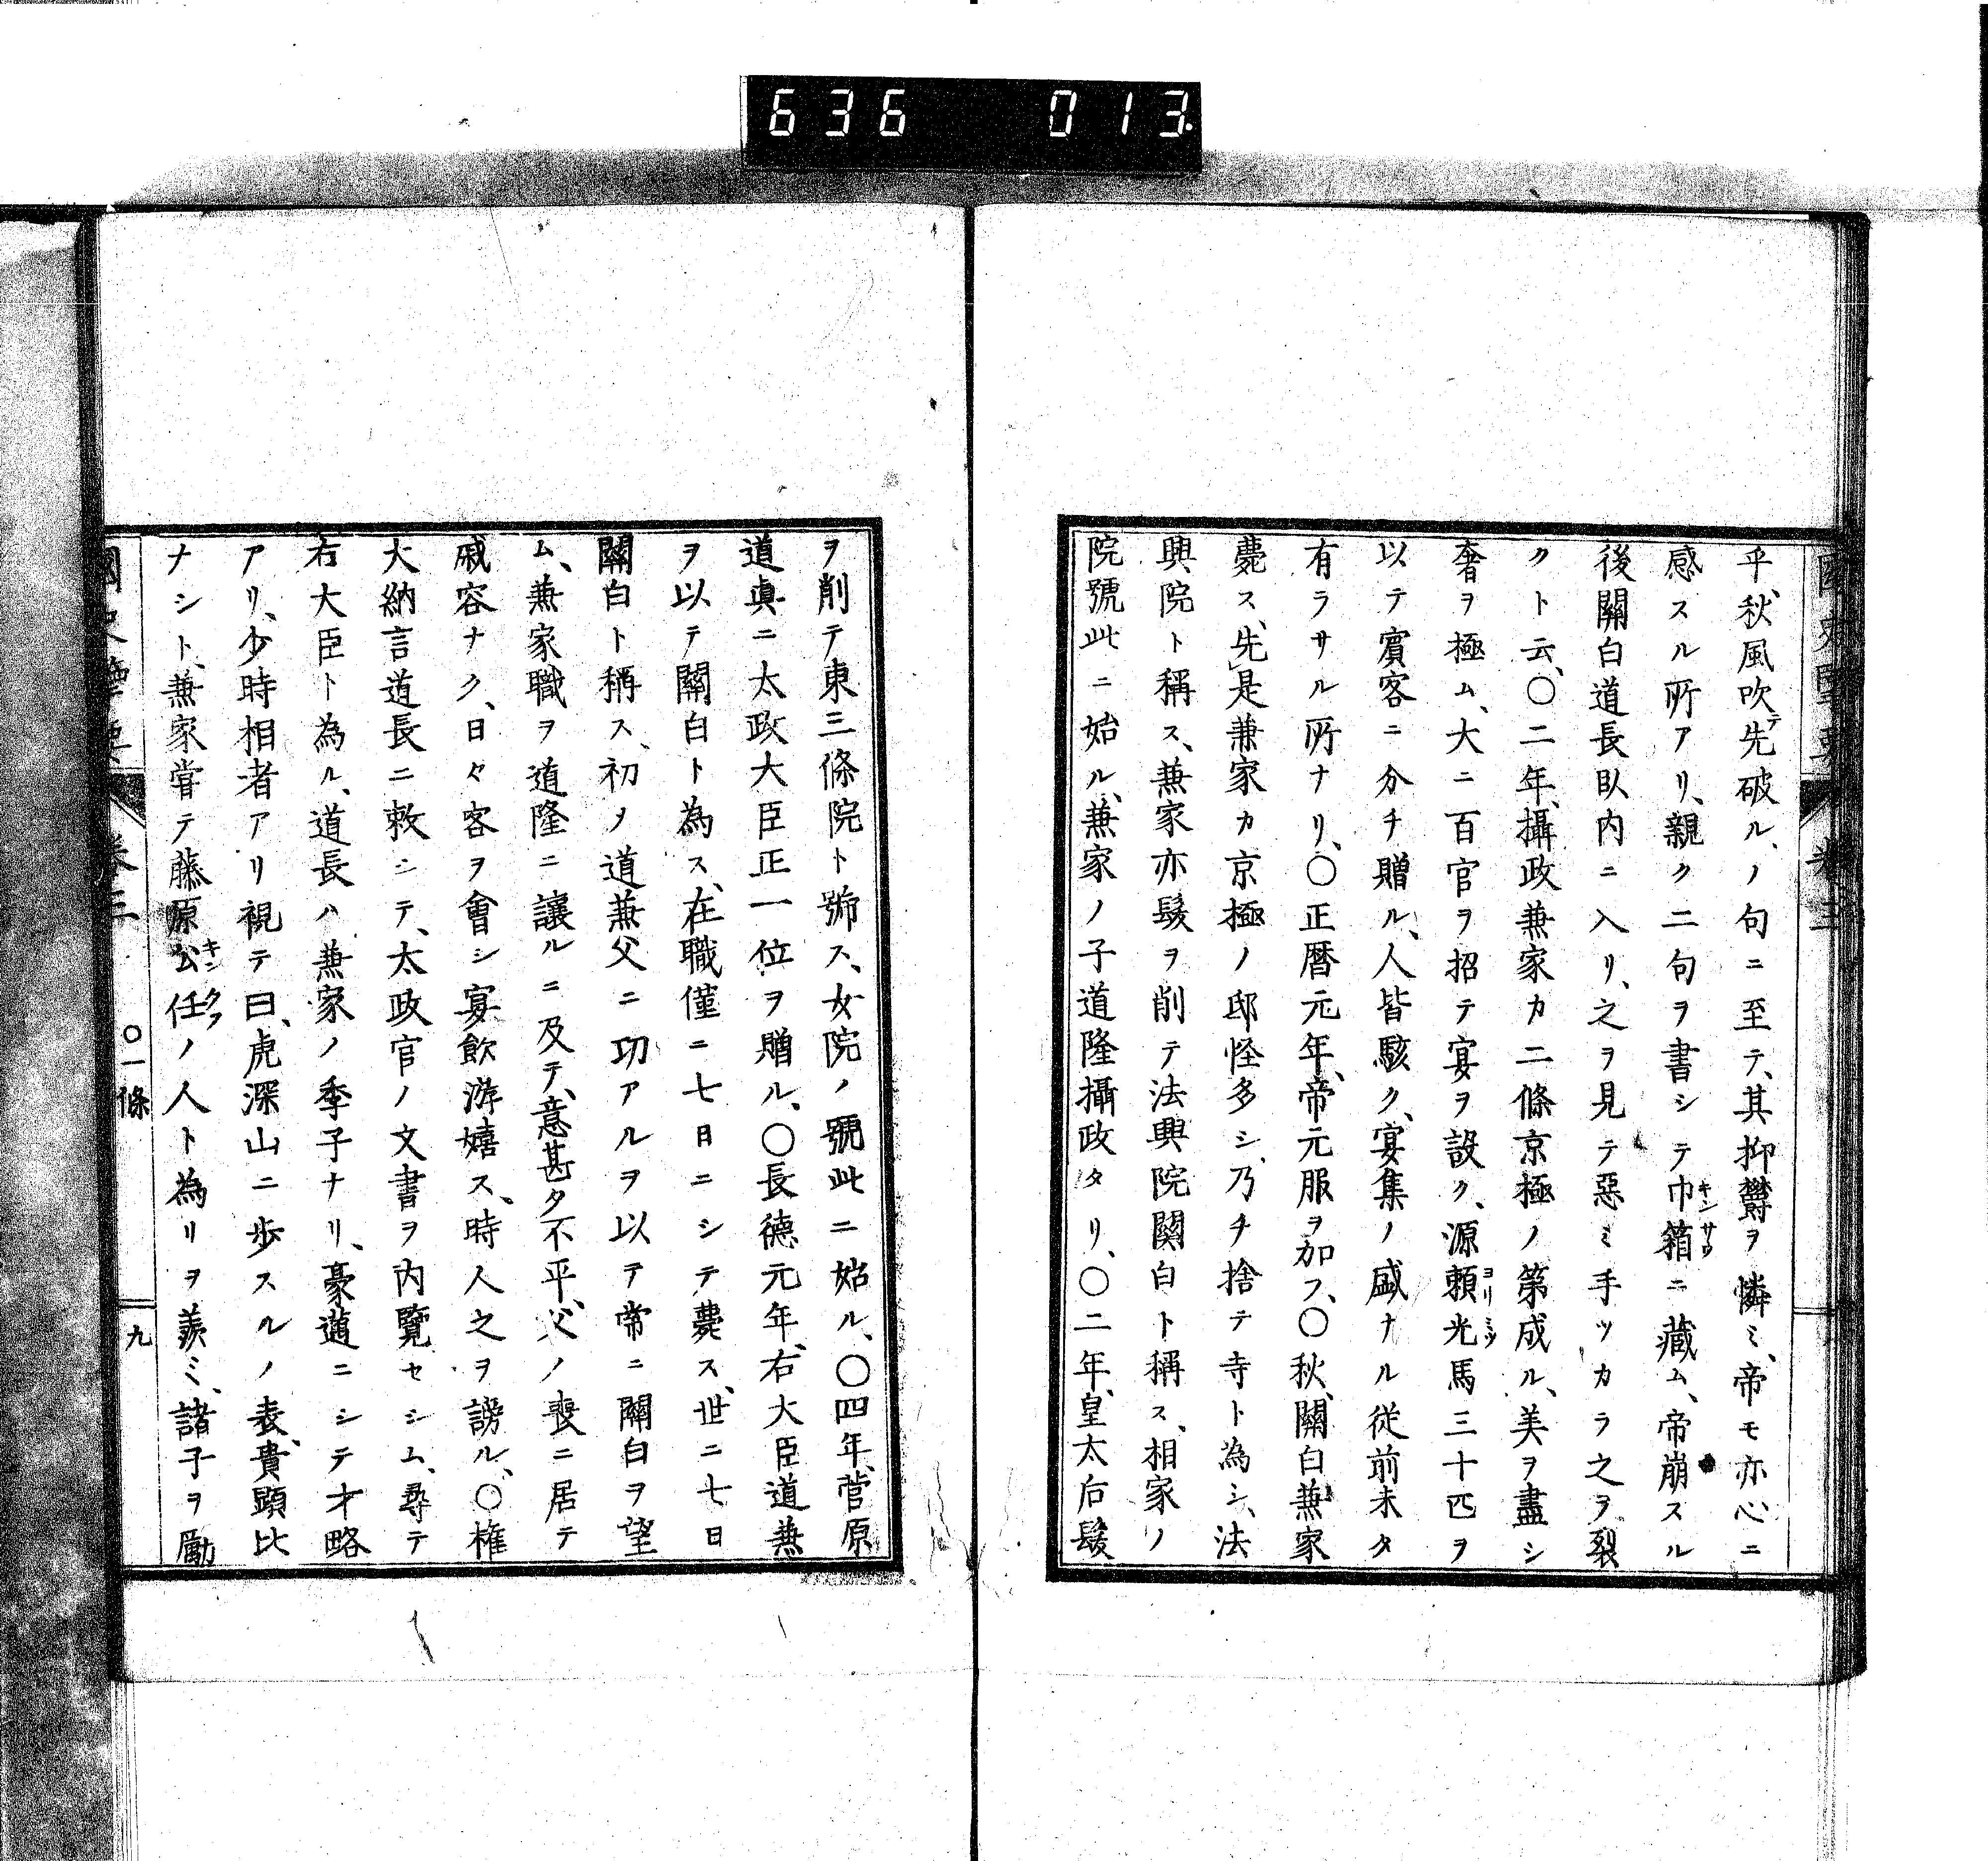 636 013
平、秋風吹テ先破ル、ノ句ニ至テ、其抑欝ヲ憐ミ、帝モ亦心ニ
感スル所アリ、親ク二句ヲ書シテ巾箱ニ藏ム、帝崩スル
後關白道長臥内ニ入リ、之ヲ見テ惡ミ手ツカラ之ヲ裂
クト云、〇二年、攝政兼家カ二條京極ノ第成ル、美ヲ盡シ
奢ヲ極ム、大ニ百官ヲ招テ宴ヲ設ク、源頼光馬三十匹ヲ
以テ賓客ニ分チ贈ル、人皆駭ク、宴集ノ盛ナル従前未タ
有ラサル所ナリ、〇正暦元年、帝元服ヲ加フ、〇秋、關白兼家
薨ス、先是兼家カ京極ノ邸怪多シ、乃チ捨テ寺ト為シ、法
興院ト稱ス、兼家亦髮ヲ削テ法興院關白ト稱ス、相家ノ
院號此ニ始ル、兼家ノ子道隆攝政タリ、〇二年、皇太后髮
ヲ削テ東三條院ト號ス、女院ノ號此ニ始ル、〇四年、菅原
道真ニ太政大臣正一位ヲ贈ル、〇長德元年、右大臣道兼
ヲ以テ關白ト為ス、在職僅ニ七日ニシテ薨ス、世ニ七日
關白ト稱ス、初メ道兼父ニ功アルヲ以テ常ニ關白ヲ望
ム、兼家職ヲ道隆ニ讓ルニ及テ、意甚タ不平、父ノ喪ニ居テ
戚容ナク、日々客ヲ會シ宴飲游嬉ス、時人之ヲ謗ル、〇権
大納言道長ニ敕シテ、太政官ノ文書ヲ内覽セシム、尋テ
右大臣ト為ル、道長ハ兼家ノ季子ナリ、豪邁ニシテ才略
アリ、少時相者アリ視テ曰、虎深山ニ歩スルノ表、貴顯比
ナシト、兼家嘗テ藤原公任ノ人ト為リヲ羨ミ、諸子ヲ勵
卷三 〇一條 九